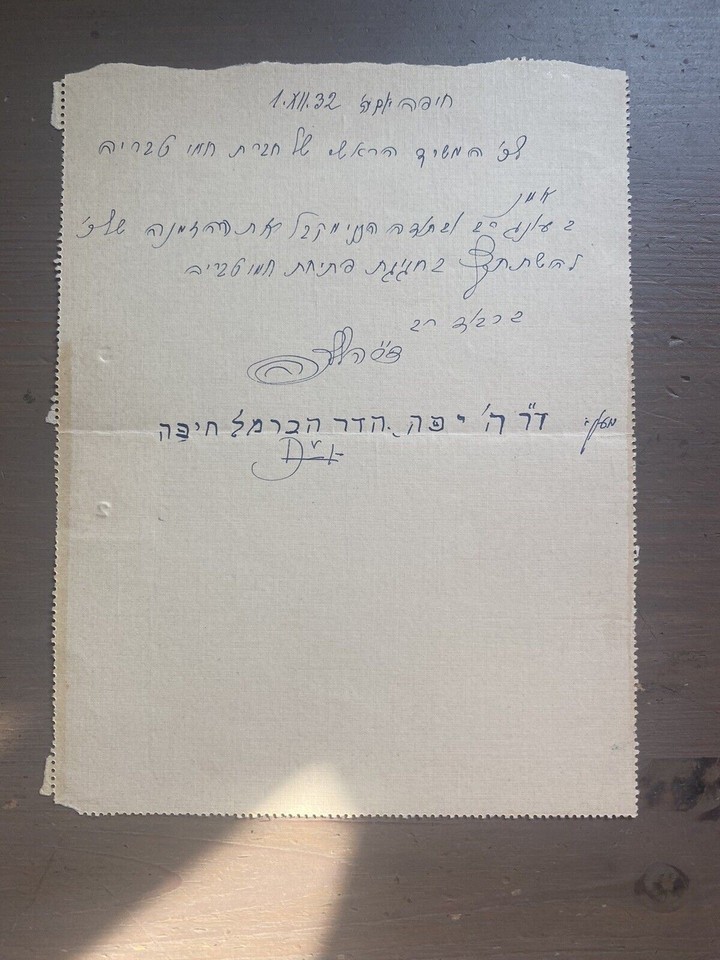 חיפה 1.VII.32
לכ' המשרד הראשי של חברת חמי טבריה
אמנ
בעונג רב ובתודה הנני מקבל את ההזמנה שלכ'
להשתתף בחגיגת פתיחת חמי טבריה
בכבוד רב
ד"ר ה' יפה הדר הכרמל חיפה